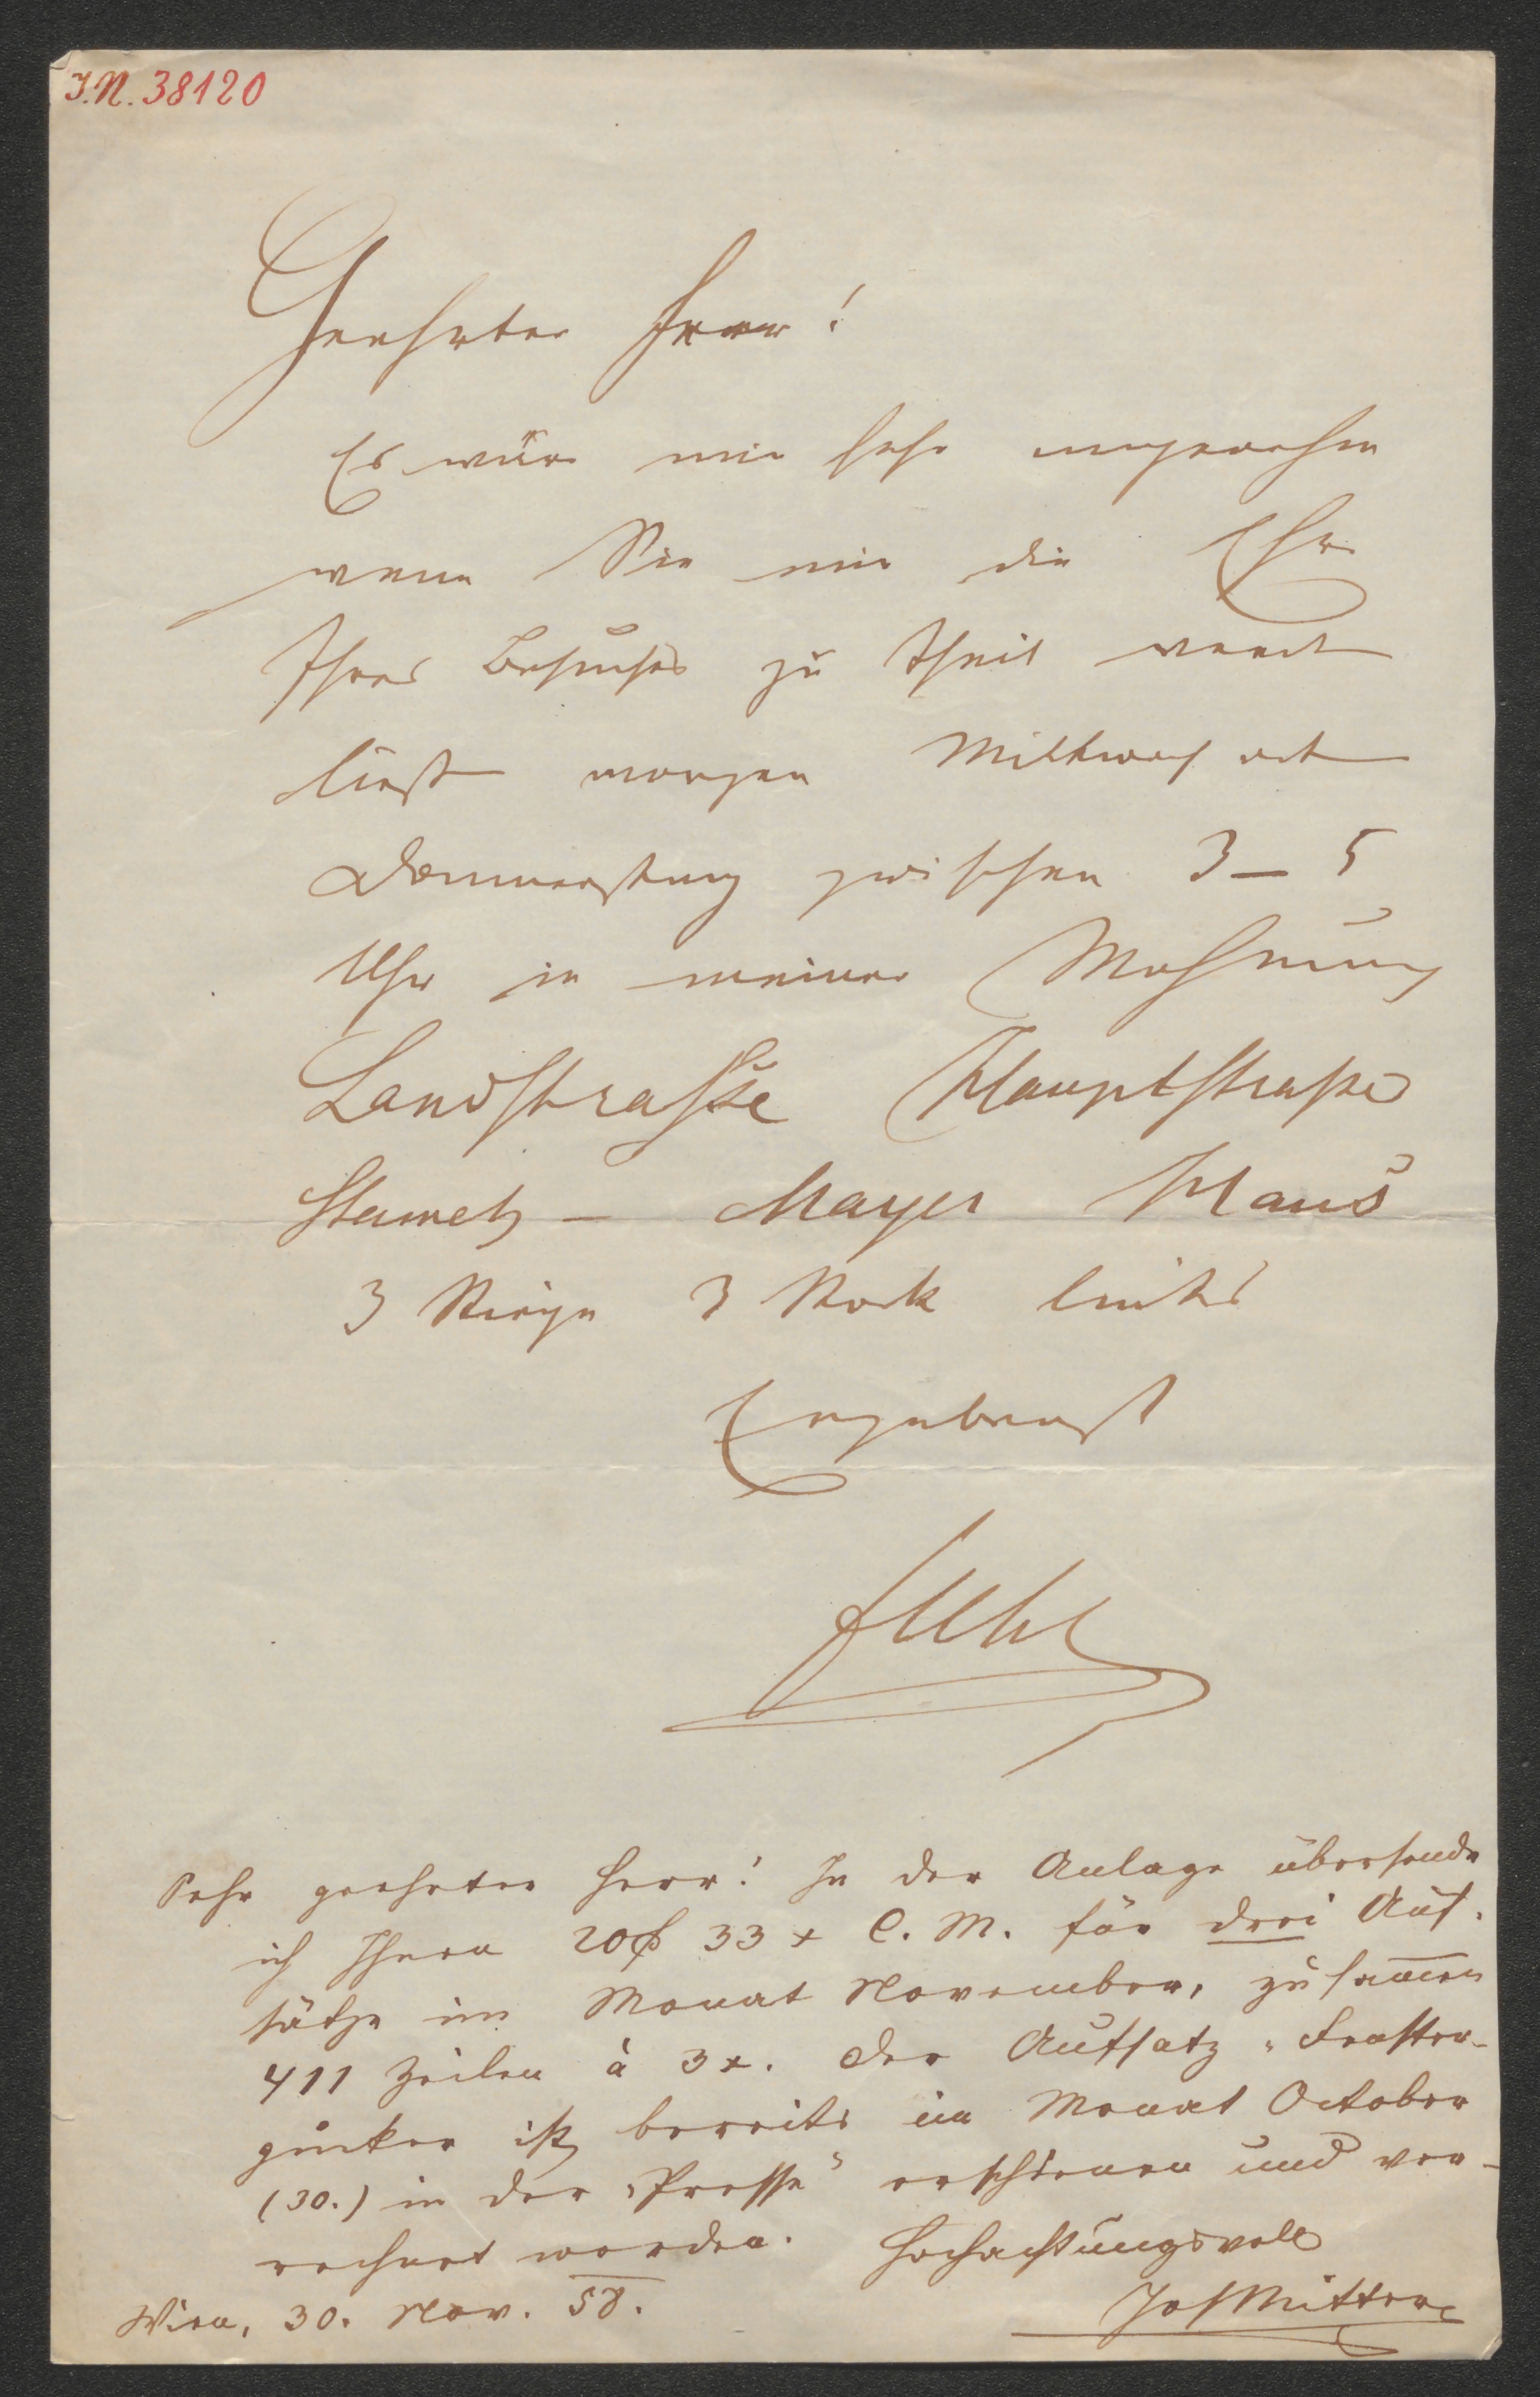 I.N. 38120
Geehrter Herr!
Es wäre mir sehr angenehm
wenn Sie mir die Ehre
Ihres Besuches zu theil werden
ließen morgen Mittwoch oder
Donnerstag zwischen 3 – 5
Uhr in meiner Wohnung
Landstrasse Hauptstrasse
Stametz – Mayer Haus
3 Stiege 3 Stock links
Ergebenst
FUhl
Sehr geehrter Herr! In der Anlage übersende
ich Ihnen 20 f 33 x C. M. für drei Auf-
sätze im Monat November, zusammen
411 Zeilen à 3 x. Der Aufsatz „Fenster-
gucker ist bereits im Monat October
(30.) in der „Presse" erschienen und ver-
rechnet worden. Hochachtungsvoll
Wien, 30. Nov. 58.